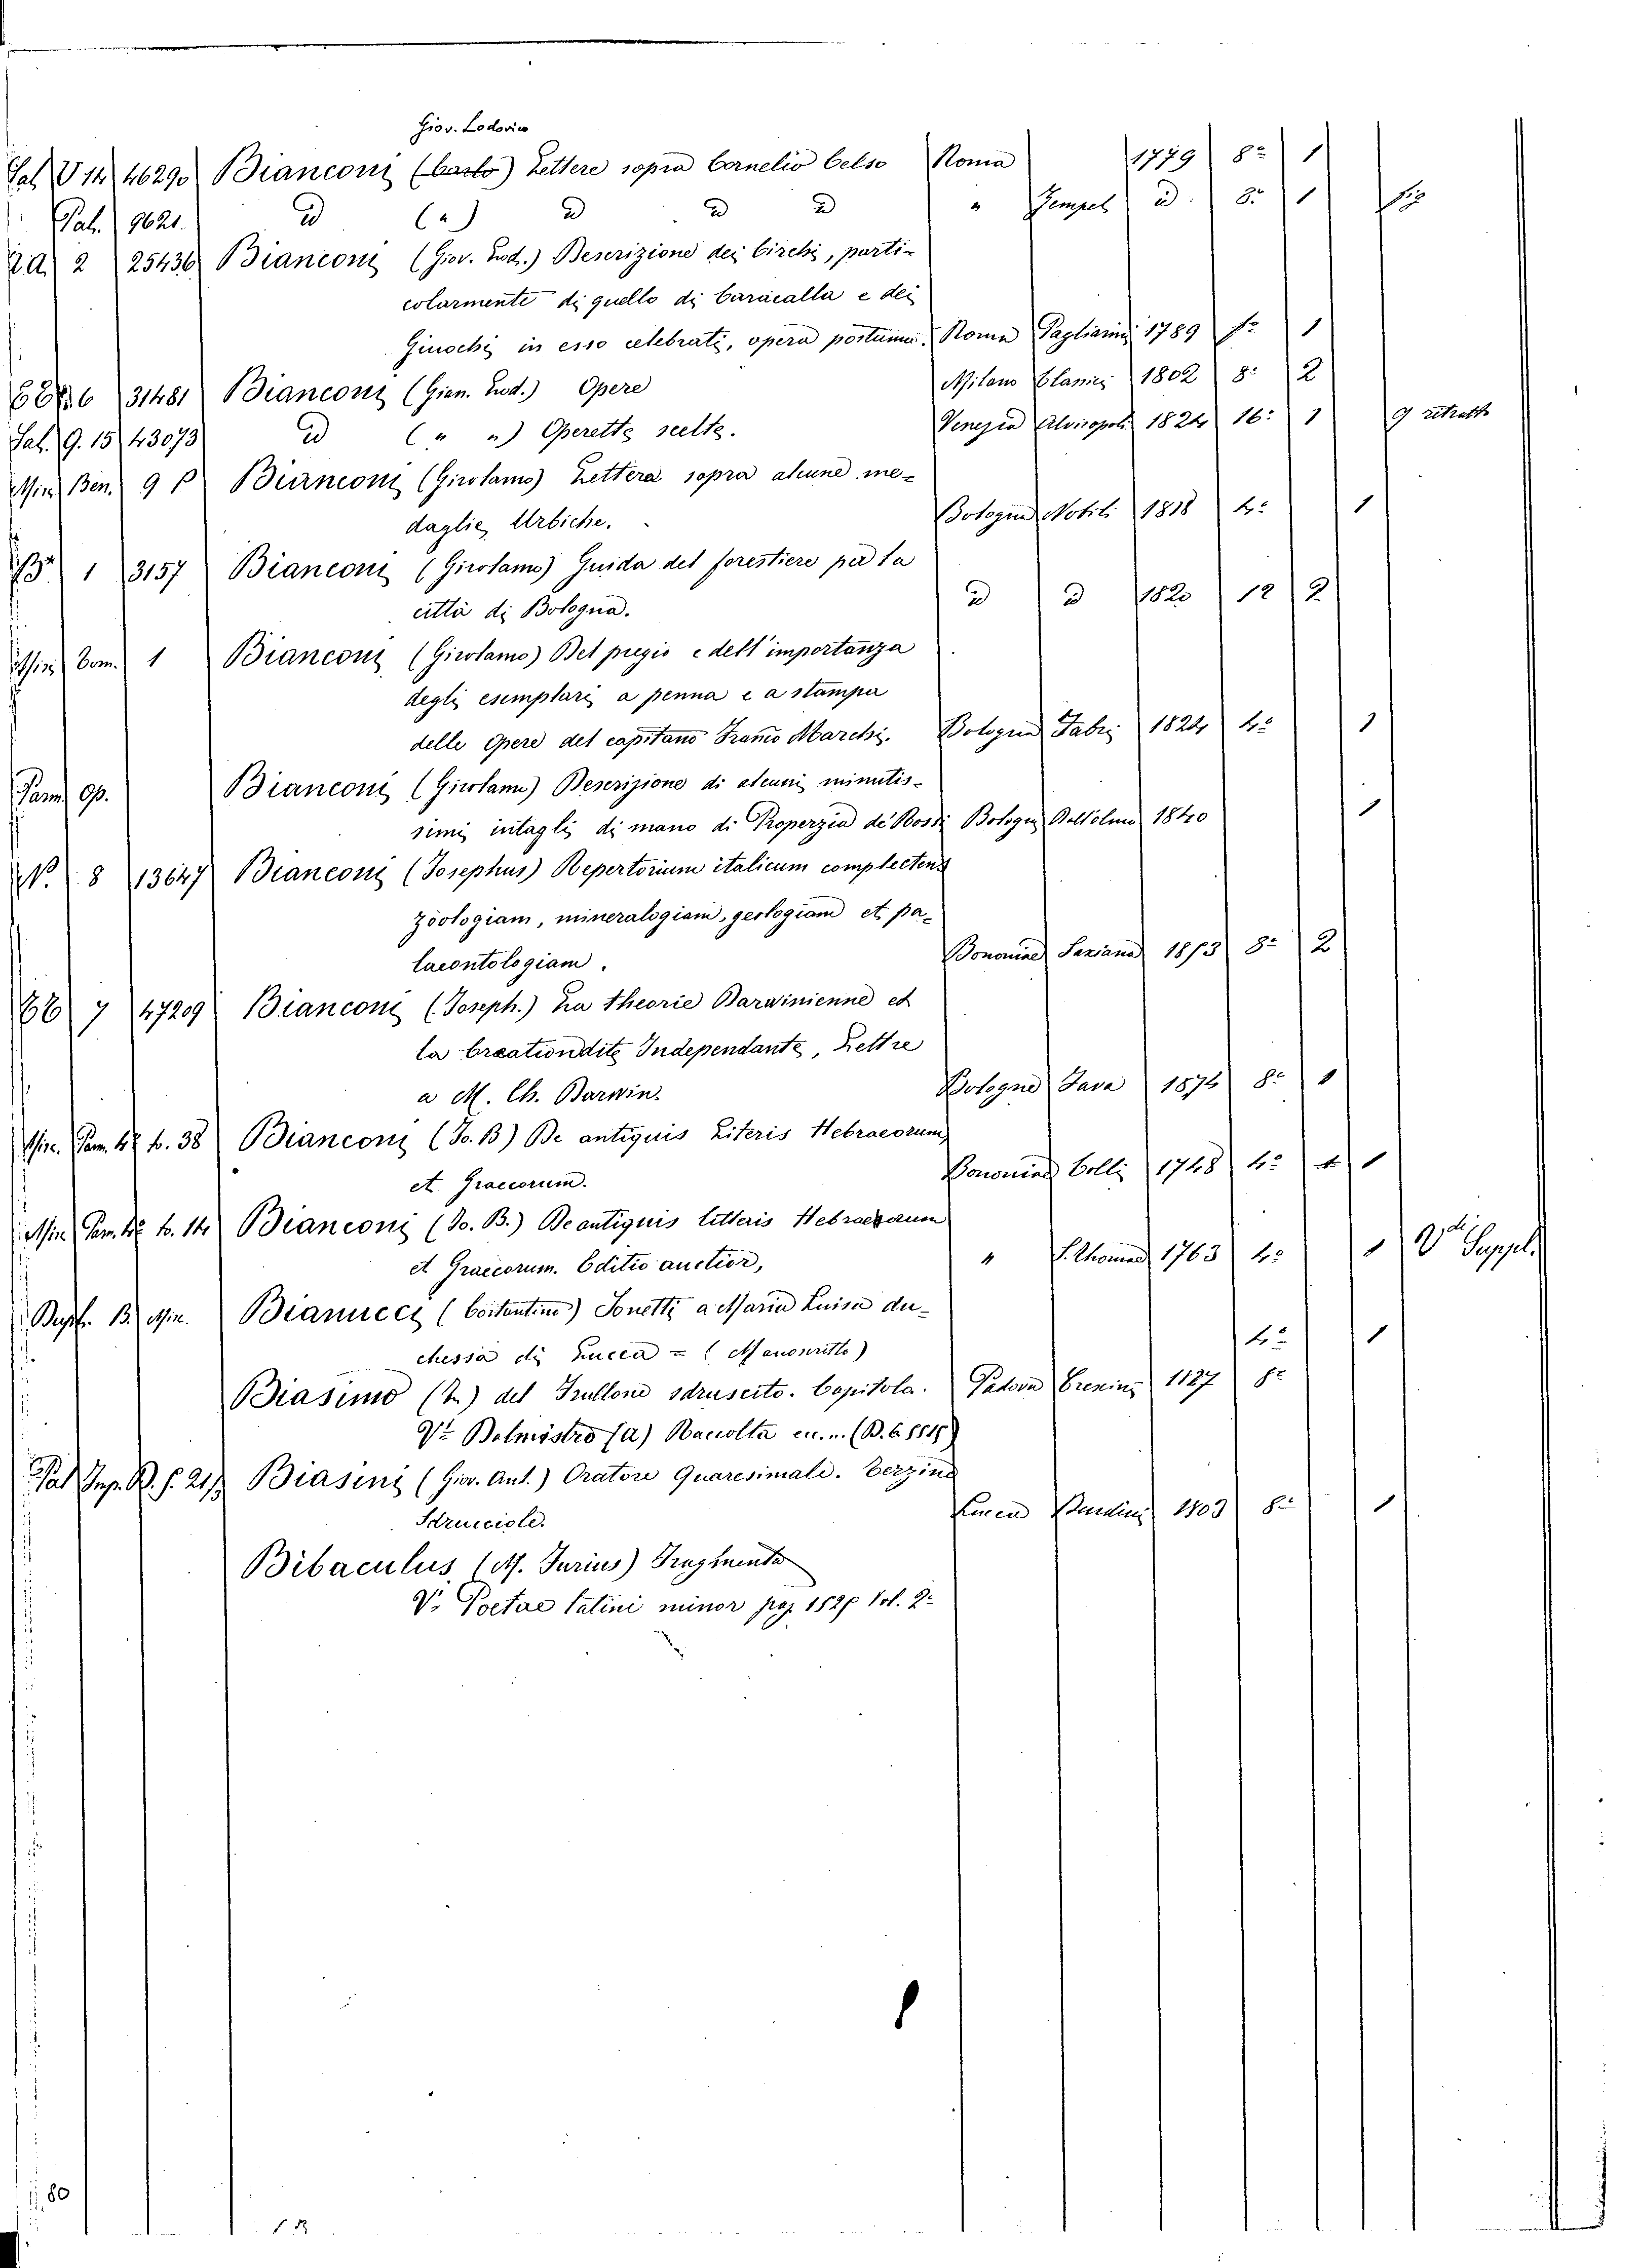 Giov. Lodovico
Sal V 14 46290 Bianconi (Carlo) Lettere sopra Cornelio Celso Roma 1779 8º 1
Pal. 9621. id (") id id id " Zempel id. 8º 1 fig
2.a. 2 25436 Bianconi (Giov. Lod.) Descrizione dei Circhi, parti-
colarmente di quello di Caracalla e dei
Giuochi in esso celebrati, opera postuma. Roma Pagliarini 1789 fº 1
6 31481 Bianconi (Gian. Lod.) Opere Milano Classici 1802 8º 2
Sal. 9. 15 43073 id (" ") Operette scelte. Venezia Alvisopoli 1824 16º 1 9 ritratto
Min Ben. 9 Bianconi (Girolamo) Lettera sopra alcune me-
daglie Urbiche. Bologna Nobili 1818 4º 1
1 3157 Bianconi (Girolamo) Guida del forestiere per la
città di Bologna. id id 1820 12 2
Min Com. 1 Bianconi (Girolamo) Del pregio e dell'importanza
degli esemplari a penna e a stampa
delle Opere del capitano Franco Marchi. Bologna Fabri 1824 4º 1
Pam Op. Bianconi (Girolamo) Descrizione di alcuni minutis-
simi intagli di mano di Properzia de Rossi Bologna 1840 1
N. 8 13647 Bianconi (Josephus) Repertorium italicum complectens
Zoologiam, mineralogiam, geologiam et pa-
laeontologiam. Bononiae 8º 2
7 47209 Bianconi (Joseph.) La theorie Darwinienne et
la Creation dite Independante, Lettre
a M. Ch. Darwin. Bologne Fava 1874 8º 1
Min. Pam. 4º t. 38 Bianconi (Jo. B) De antiquis Literis Hebraeorum
et Graecorum. Bononiae Colli 1748 4º 1
Min Pam. 4º t. 14 Bianconi (Jo. B.) De antiquis litteris Hebraeorum
et Graecorum. Editio auctior, " S. Thomae 1763 4º 1 Vdi Suppl.
B. Min. Bianucci (Costantino) Sonetti a Maria Luisa du-
chessa di Lucca = (Manoscritto) 4º 1
Biasimo (Il) del Frullone sdruscito. Capitolo. Padova 8º
Vº Balmistro (a) Raccolta
Pal Biasini (Gio. Ant.) Oratore Quaresimale. Terzine
Sdrucciole. Lucca 1803 8º 1
Bibaculus (M. Furius) Fragmenta
Vº Poetae latini minor Vol. 2º
80